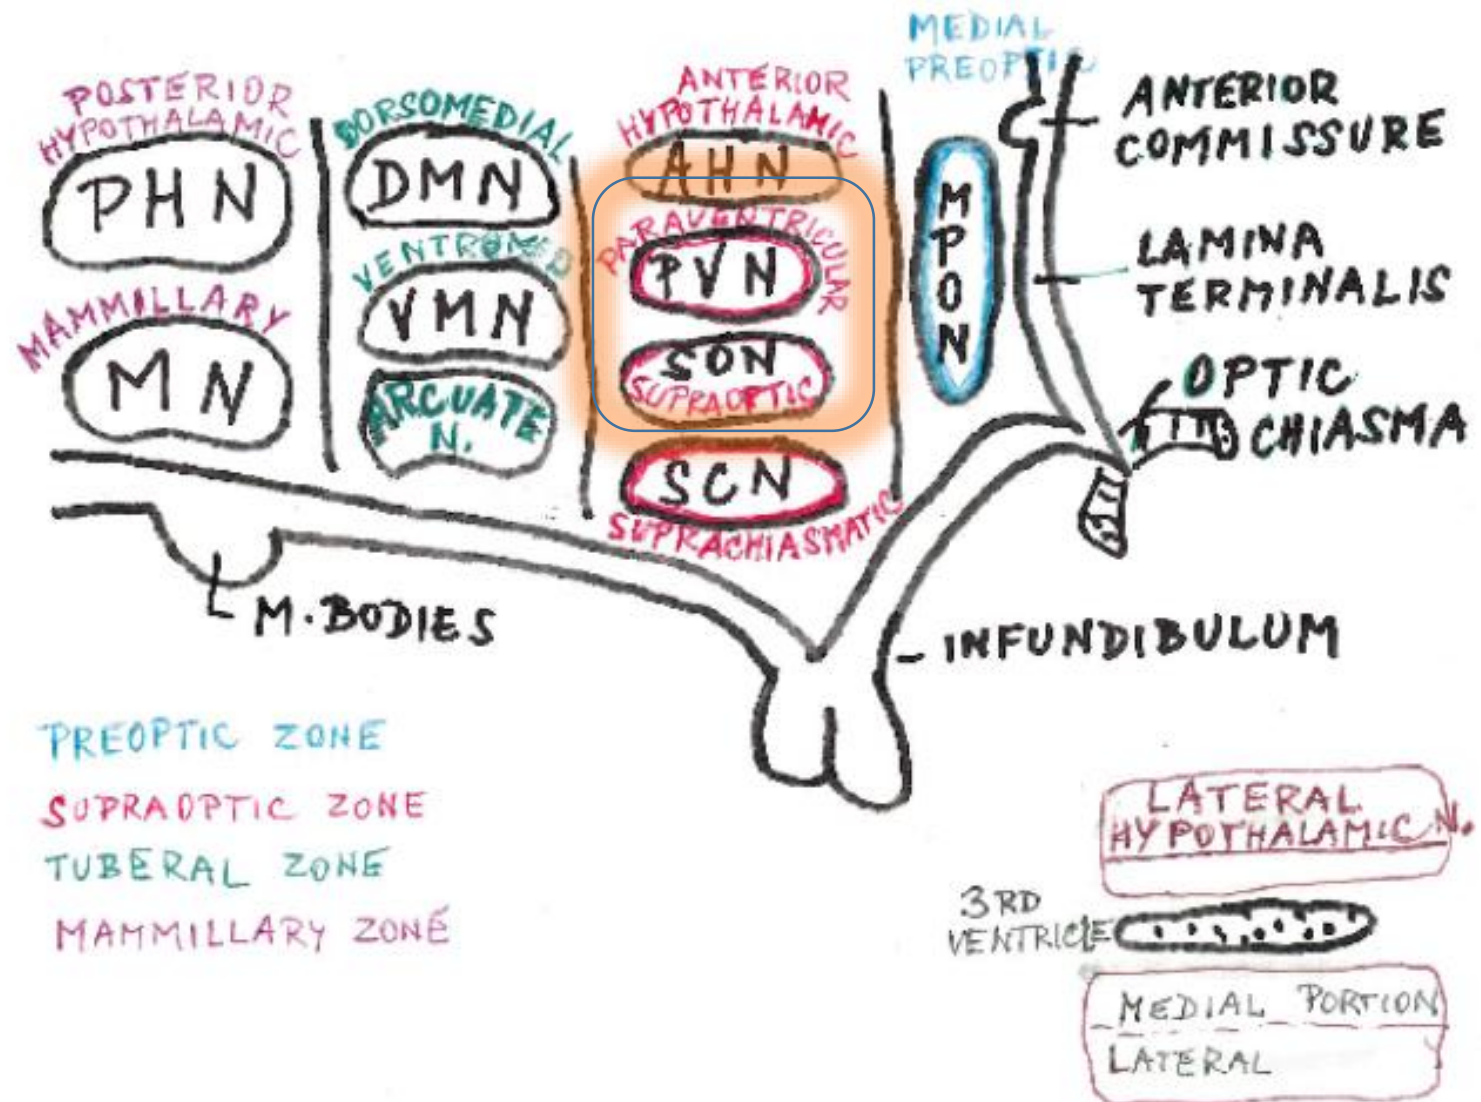 POSTERIOR
HYPOTHALAMIC
PHN
MAMMILLARY
MN
DORSOMEDIAL
DMN
VENTROMED
VMN
ARCUATE
N.
ANTERIOR
HYPOTHALAMIC
AHN
PARAVENTRICULAR
PVN
SON
SUPRAOPTIC
SCN
SUPRACHIASMATIC
MEDIAL
PREOPTIC
MPON
ANTERIOR
COMMISSURE
LAMINA
TERMINALIS
OPTIC
CHIASMA
M.BODIES
INFUNDIBULUM
PREOPTIC ZONE
SUPRAOPTIC ZONE
TUBERAL ZONE
MAMMILLARY ZONE
LATERAL
HYPOTHALAMIC N.
3RD
VENTRICLE
MEDIAL PORTION
LATERAL